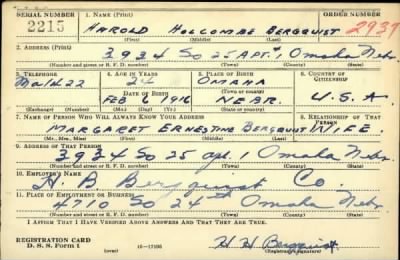 SERIAL NUMBER 1. NAME (Print) ORDER NUMBER
2213 HAROLD HOLCOMBE BERGQUIST 2939
(First) (Middle) (Last)
2. ADDRESS (Print)
3934 SO 25 APT. 1 Omaha Nebr
(Number and street or R. F. D. number) (Town) (County) (State)
3. TELEPHONE 4. AGE IN YEARS 5. PLACE OF BIRTH 6. COUNTRY OF CITIZENSHIP
24 OMAHA
DATE OF BIRTH
FEB 6 1916 NEBR. U.S.A.
(Exchange) (Number) (Mo.) (Day) (Yr.) (State or country)
7. NAME OF PERSON WHO WILL ALWAYS KNOW YOUR ADDRESS 8. RELATIONSHIP OF THAT PERSON
MARGARET ERNESTINE BERGQUIST WIFE
(Mr., Mrs., Miss) (First) (Middle) (Last)
9. ADDRESS OF THAT PERSON
3934 So 25 apt 1 Omaha Nebr.
(Number and street or R. F. D. number) (Town) (County) (State)
10. EMPLOYER'S NAME
H. B. Bergquist Co
11. PLACE OF EMPLOYMENT OR BUSINESS
4710 So 24th Omaha Nebr
(Number and street or R. F. D. number) (Town) (County) (State)
I AFFIRM THAT I HAVE VERIFIED ABOVE ANSWERS AND THAT THEY ARE TRUE.
REGISTRATION CARD
D. S. S. Form 1 (over) 16—17105 H H Bergquist
(Registrant's signature)